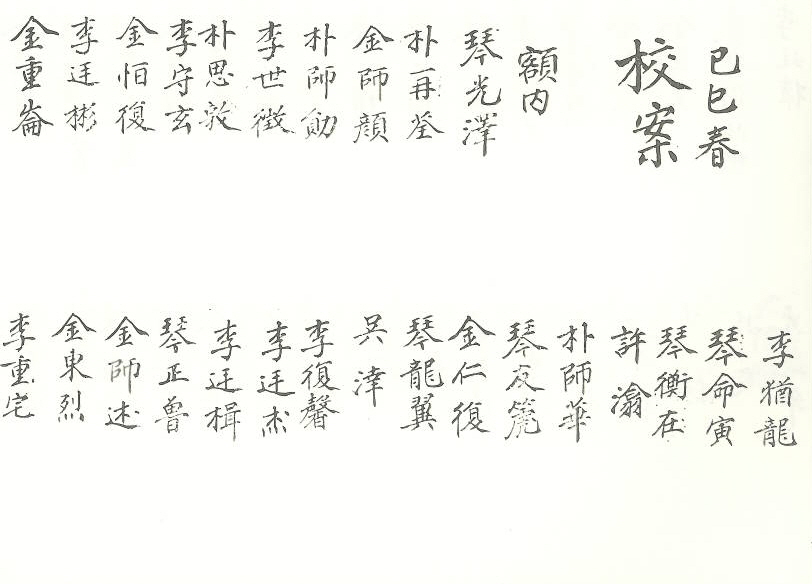 己巳春
校案
額内
琴光澤
朴再荃
金師顔
朴師勛
李世徵
朴思敦
李守玄
金怕復
李廷彬
金重崙
李猶龍
琴命寅
琴衡在
許滃
朴師華
琴友篪
金仁復
琴龍翼
吳湋
李復馨
李廷杰
李廷楫
琴正魯
金師述
金東烈
李重宅